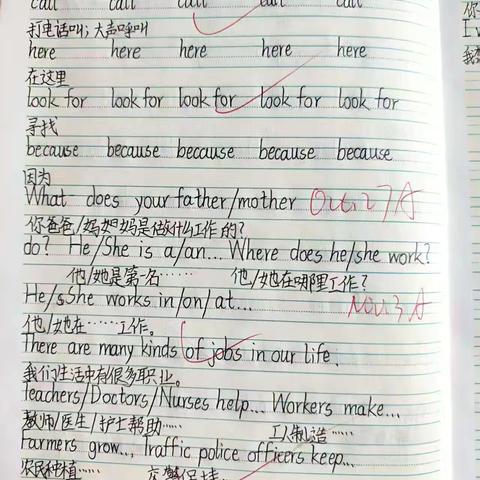 call call call call call
打电话叫；大声呼叫
here here here here here
在这里
look for look for look for look for look for
寻找
because because because because because
因为
What does your father/mother Oct.27 A
你爸爸/妈妈是做什么工作的？
do? He/She is a/an... Where does he/she work?
他/她是第一名…… 他/她在哪里工作？
He/sShe works in/on/at... Nov.3 A
他/她在……工作。
There are many kinds of jobs in our life.
我们生活中有很多职业。
Teachers/Doctors/Nurses help... Workers make...
教师/医生/护士帮助…… 工人制造……
Farmers grow..., Traffic police officers keep...
农民种植…… 交警保持……
你
I
我